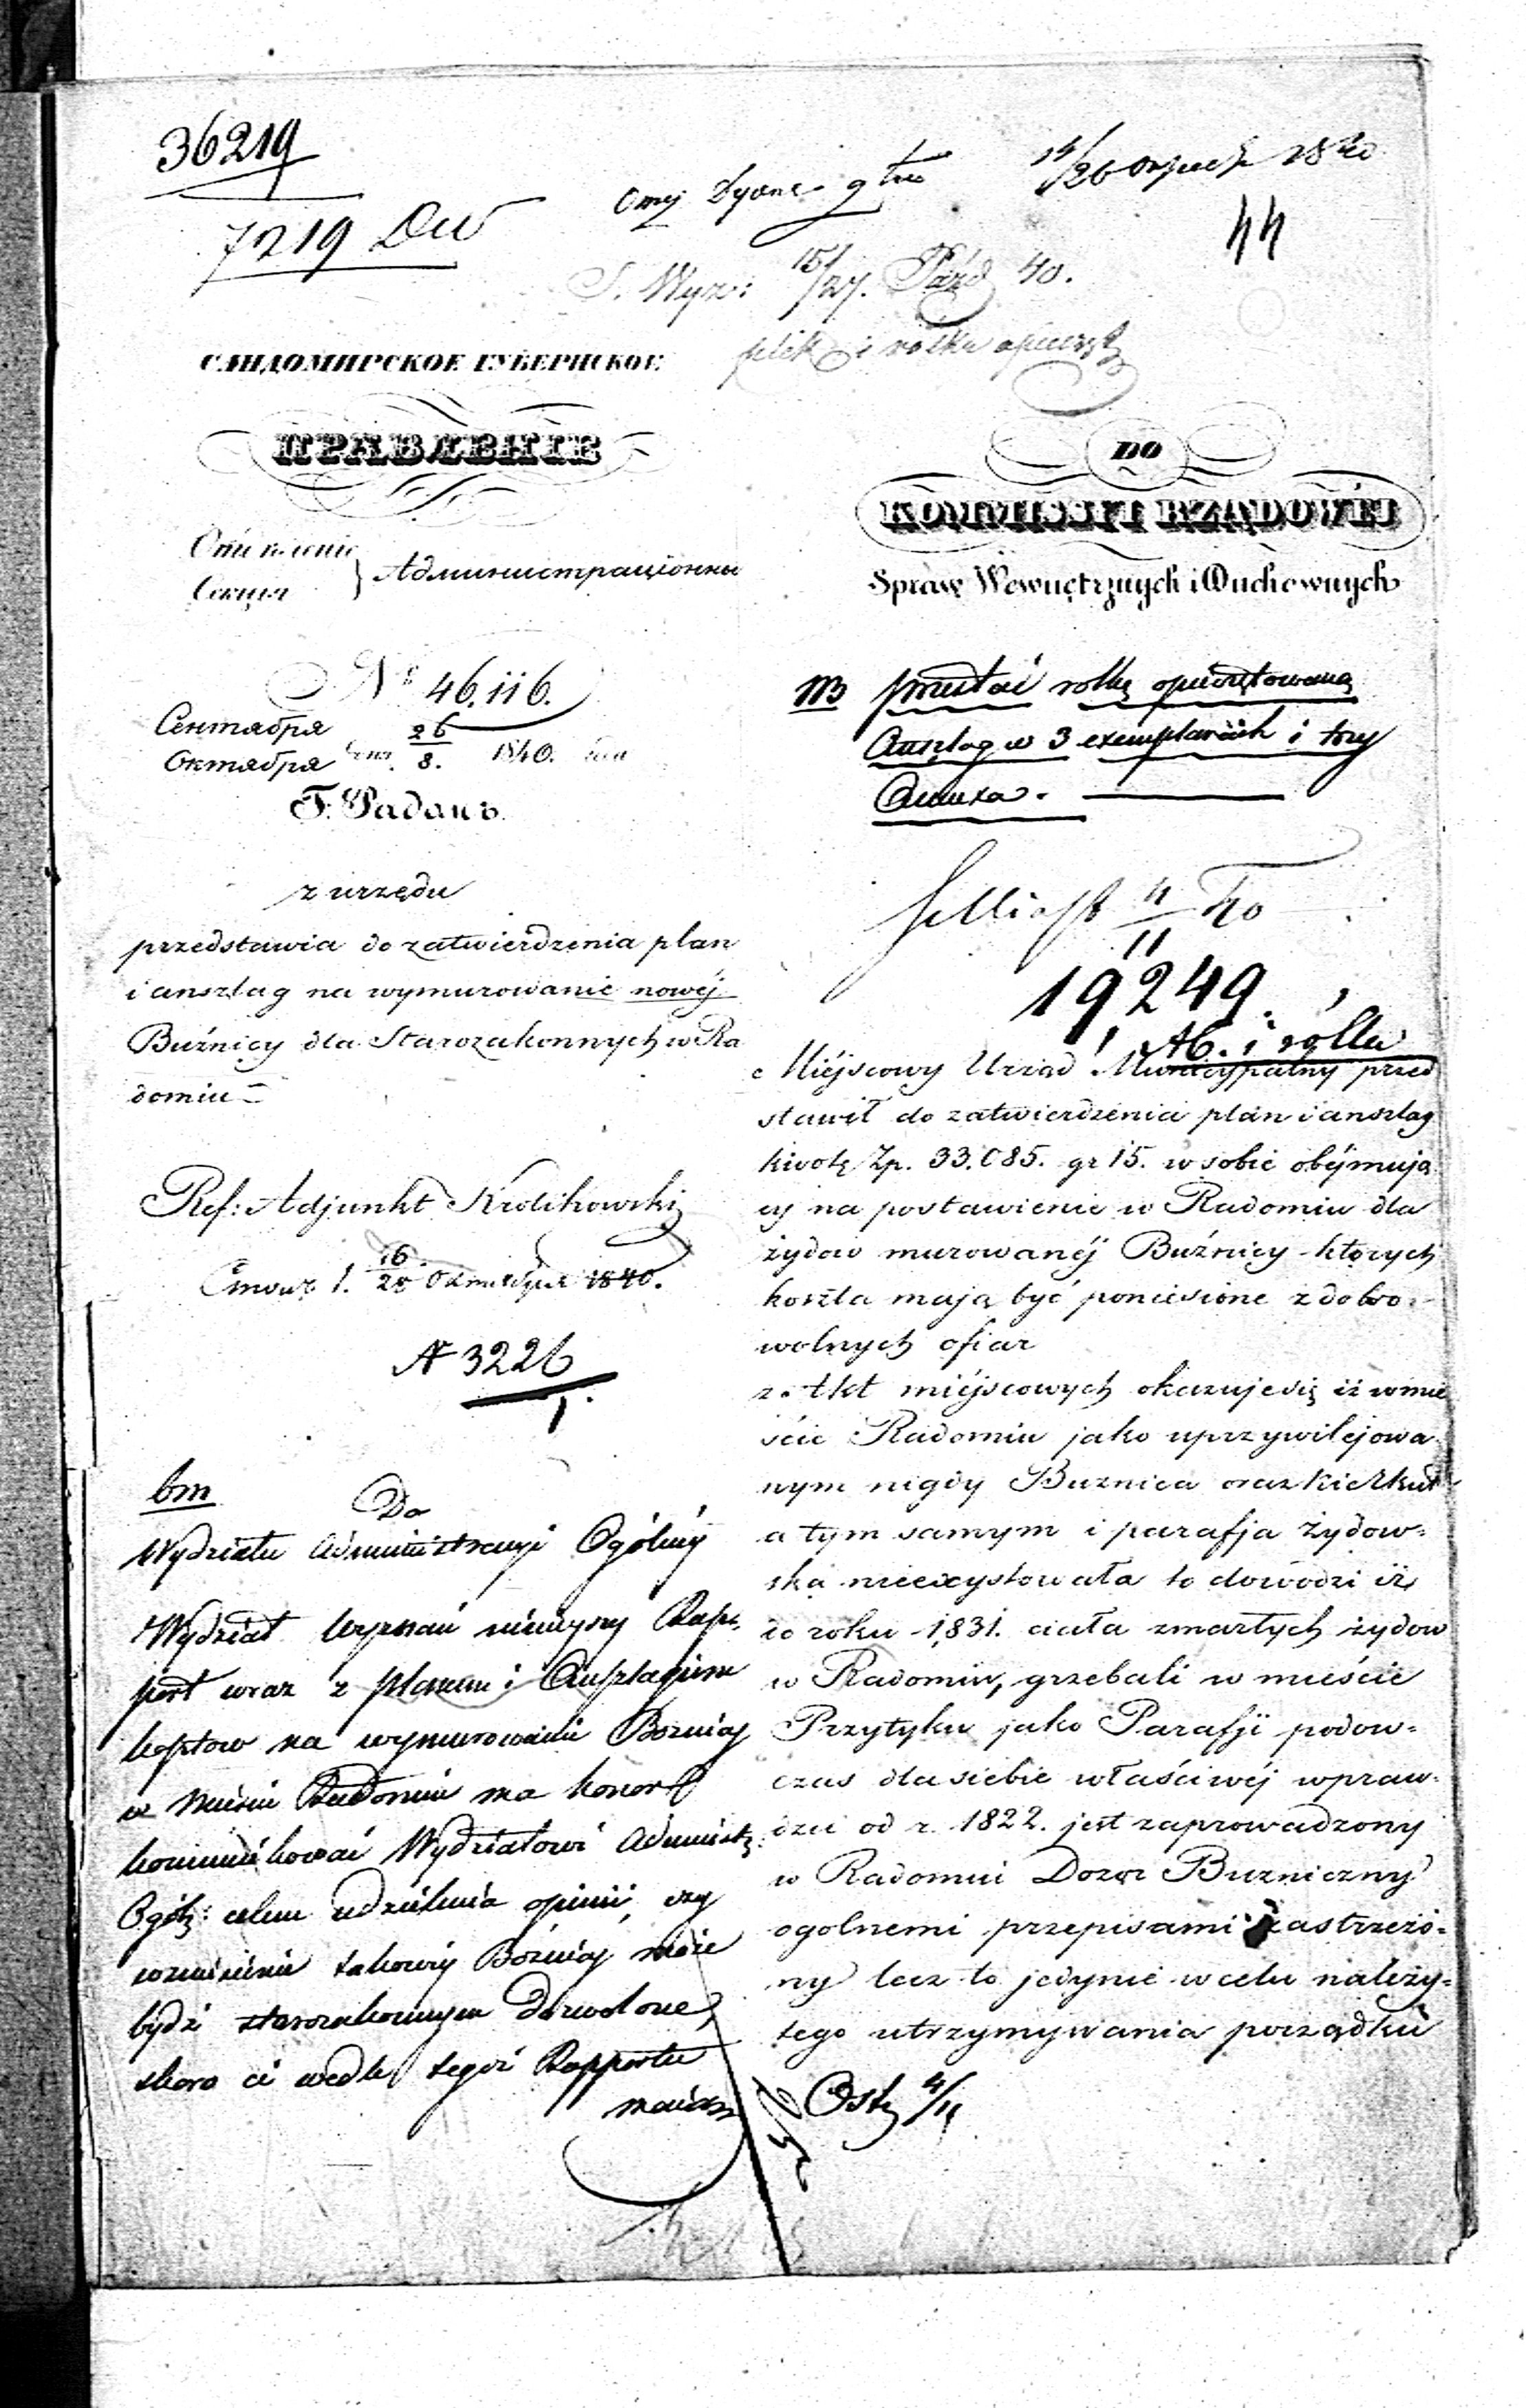 36219
7219 DW
44
S. Wyzn: 15/27. Paźd 40.
plik i rolka opieczęt
САНДОМИРСКОЕ ГУБЕРНСКОЕ
ПРАВЛЕНІЕ
Отделеніе
Секція
Административное
№ 46.116.
Сентября 26
Октября 8. 1840. года
Г. Радомъ.
z urzędu
przedstawia do zatwierdzenia plan
i anszlag na wymurowanie nowéj
Buźnicy dla Starozakonnych w Ra
domiu =
Ref: Adjunkt Krolikowski
16/28 Октября 1840.
N 3226
1.
bm
Do
Wydziału Administracyi Ogólnéj
Wydział Wyznań niniejszy Rap-
port wraz z planem i Anszlagiem
kosztow na wymurowanie Bożnicy
w Mieście Radomiu ma honor
kommunikować Wydziałowi Administ:
Ogól: celem udzielenia opinii, czy
wzniesienie takowéj Bożnicy może
bydź starozakonnym dozwolone,
skoro ci wedle tegoż Rapportu
DO
KOMMISSYI RZĄDOWÉJ
Spraw Wewnętrznych i Duchownych
NB przesłać rolkę opieczętowaną
Anszlag w 3 exemplarzach i trzy
19249.
Ab. i rolka
Miéjscowy Urząd Municypalny przed
stawił do zatwierdzenia plan i anszlag
kwotę Zp. 33.085. gr 15. w sobie obéjmują
cy na postawienie w Radomiu dla
żydow murowanéj Buźnicy których
koszta mają być poniesione z dobro-
wolnych ofiar
z Akt miéjscowych okazuje się iż w mie
ście Radomiu jako uprzywilejowa-
nym nigdy Buznica oraz Kierkut
a tym samym i parafja Żydow=
ska nieexystowała to dowodzi iż
do roku 1831. ciała zmarłych żydow
w Radomiu, grzebali w mieście
Przytyku jako Parafji podow=
czas dla siebie właściwéj wpraw-
dzie od r. 1822. jest zaprowadzony
w Radomiu Dozor Buzniczny
ogolnemi przepisami zastrzeżo=
ny lecz to jedynie w celu należy=
tego utrzymywania porządku
4/11